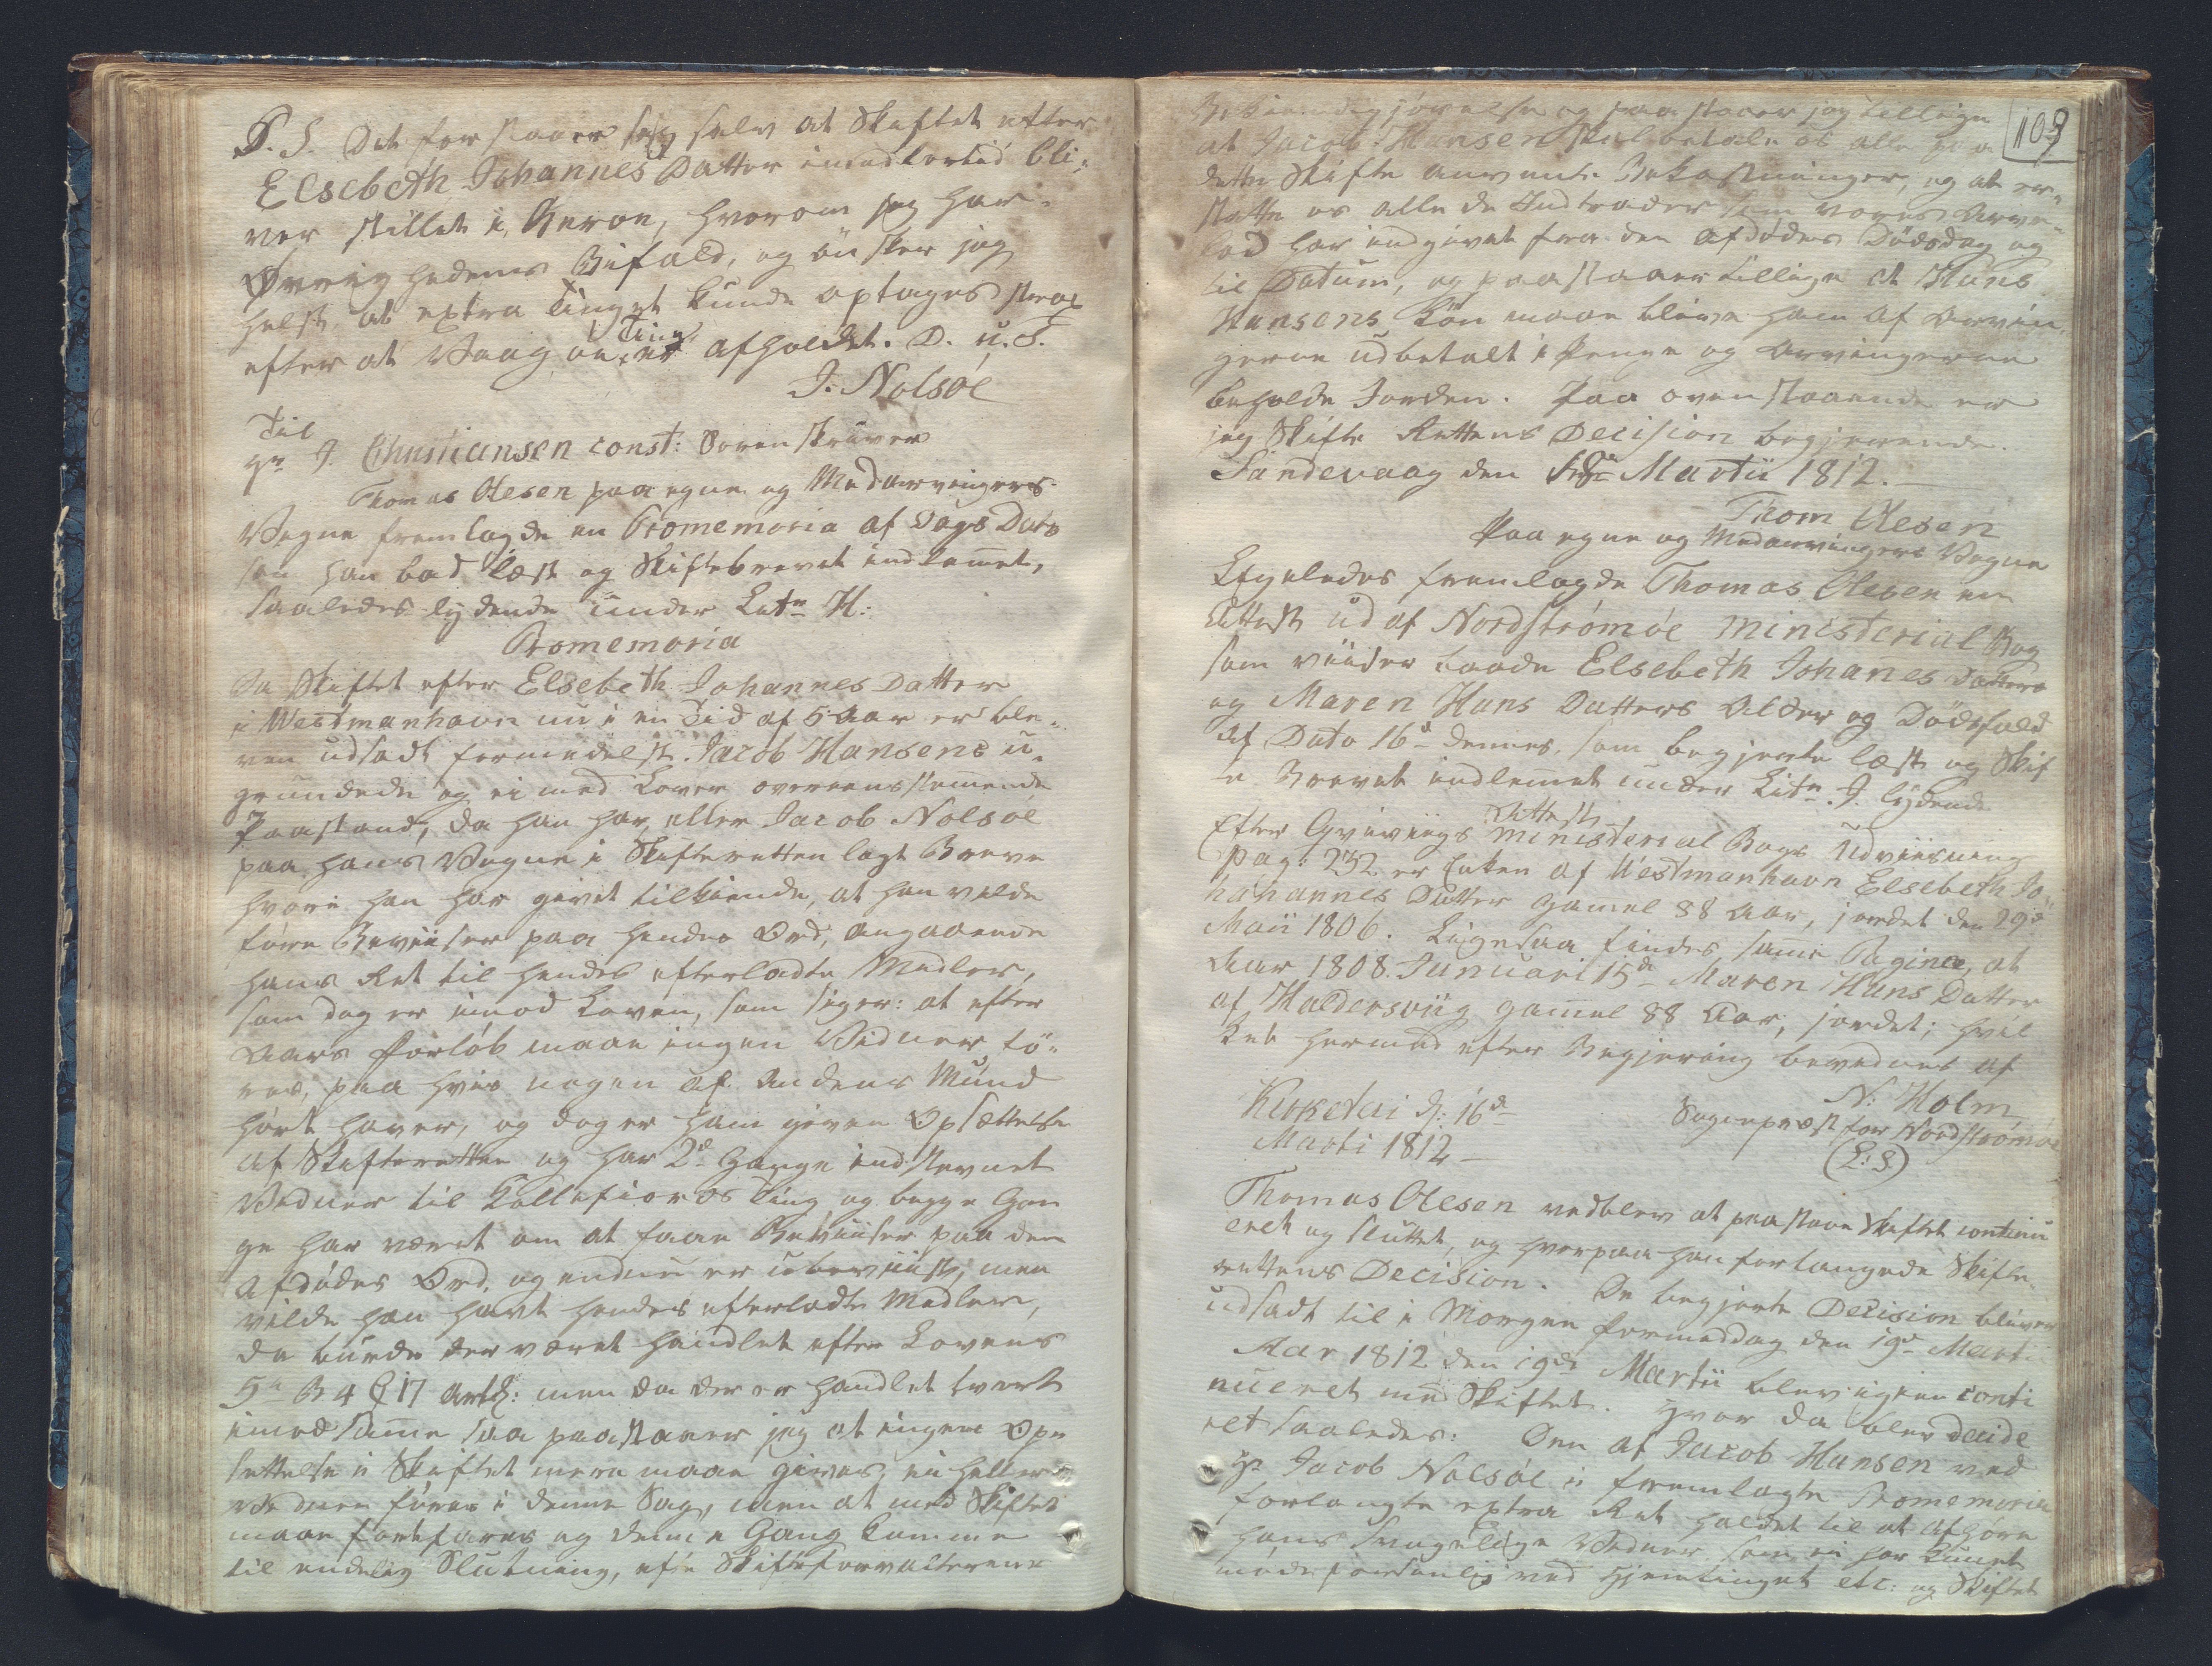 P. S. Det forstaaer sig selv at Skiftet efter
Elsebeth Johannes Datter imedlertid bli¬
ver stillet i Beroe, hvorom jeg har
Øvrighedens Bifald, og ønsker jeg
helst, at extra Tinget kunde optages strax
efter at Vaagøe Ting er afholdet. D. u. S.
J. Nolsøe
Til
Hr J. Christiansen const: Sorenskriver
Thomas Olesen paa egne og Medarvingers
Vegne fremlagde en Promemoria af Dags Dato
som han bad læst og Skiftebrevet indlemmet,
saaledes lydende under Litr H:
Promemoria
Da Skiftet efter Elsebeth Johannes Datter
i Westmanhavn nu i en Tid af 5 Aar er ble¬
ven udsadt formedelst Jacob Hansens u¬
grundede og ei med Loven overeensstemmende
Paastand, da han har, eller Jacob Nolsøe
paa hans Vegne i Skifteretten lagt Breve
hvori han har givet tilkiende, at han vilde
føre Beviiser paa hendes Ord, angaaende
hans Ret til hendes efterladte Medler,
som dog er imod Loven, som siger: at efter
Aars Forløb maae ingen Vidner fø¬
res, paa hvis nogen af Andens Mund
hørt haver, og dog er ham given Opsættelse
af Skifteretten og har 2de Gange indstevnet
Vidner til Kollefiords Ting og begge Gan
ge har været om at faae Beviiser paa den
afdødes Ord, og endnu er ubeviist, men
vilde han havt hendes efterladte Medler,
da burde der været handlet efter Lovens
5te B 4 C 17 Artl: men da der er handlet tvert
imod samme saa paastaaer jeg at ingen Op¬
settelse i Skiftet mere maae gives, ei heller
Vidner føres i denne Sag, men at med Skiftet
maae fortfares og denne Gang komme
til endelig Slutning, efter Skifteforvalterens
109
Bekiendtgjørelse og paastaaer jeg tillige
at Jacob Hansen skal betale os alle paa
dette Skifte anvente Bekostninger, og at er¬
statte os alle de Indtræder som vores Arve¬
lod har indgivet fra den afdødes Dødsdag og
til Datum, og paastaaer tillige at Hans
Hansens Løn maae blive ham af Arvin
gerne udbetalt i Penge og Arvingerne
beholde Jorden. Paa ovenstaaende er
jeg Skifte Rettens Decision begjerende.
Sandevaag den 18de Martii 1812.
Thom Olesen
Paa egne og Medarvingers Vegne
Ligeledes fremlagde Thomas Olesen en
Attest ud af Nordstrømøe Ministerial Bog
som viiser baade Elsebeth Johanes Datters
og Maren Hans Datters Alder og Dødsfald
af Dato 16d dennes, som begjerte læst og Skif
te Brevet indlemmet under Litr. J. lydende
Attest
Efter Qviviigs Ministerial Bogs Udviisning
Pag: 232 er Enken af Westmanhavn Elsebeth Jo¬
hahannes Datter gamel 88 Aar, jordet den 29d
Maii 1806. Ligesaa findes samme Pagina, at
Aar 1808. Januari 15d Maren Hans Datter
af Haldersviig gammel 88 Aar, jordet; hvil
ket hermed efter Begjering bevidnes af
N: Holm
Sognepræst for Nordstrømøe
(L: S)
Qvivig d: 16d
Marti 1812
Thomas Olesen vedblev at paastaae Skiftet continu
eret og sluttet, og hvorpaa han forlangede Skifte
rettens Decision. De begjerte Decision bliver
udsadt til i Morgen Formiddag den 19d Marti
Aar 1812 den 19de Martii blev igien conti
nueret med Skiftet. Hvor da blev decide
ret saaledes: Den af Jacob Hansen ved
Hr Jacob Nolsøe i fremlagte Promemoria
forlangte extra Ret holdet til at afhøre
hans svagelige Vidner som ei har kunnet
møde personlig ved Hjemtinget etc: og Skiftet